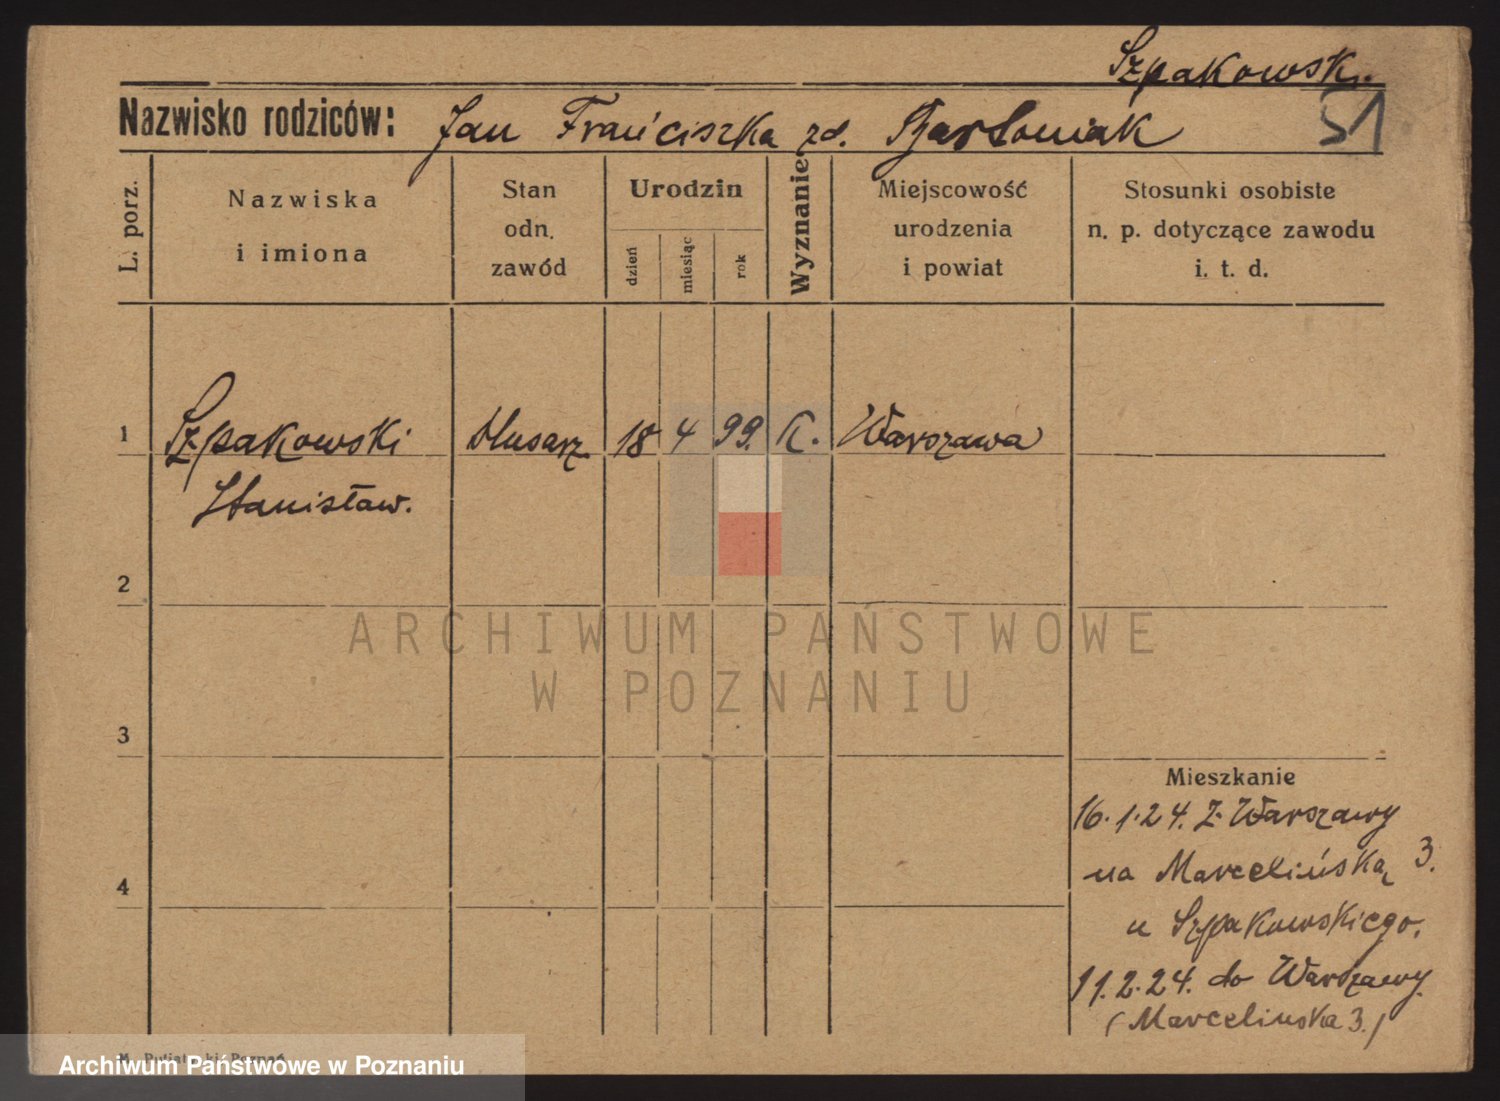 Szpakowski.
51
Nazwisko rodziców: Jan Franciszka zd. Bartoniak
L. porz.
Nazwiska i imiona
Stan odn. zawód
Urodzin
dzień
miesiąc
rok
Wyznanie
Miejscowość urodzenia i powiat
Stosunki osobiste n. p. dotyczące zawodu i. t. d.
1 Szpakowski ślusarz 18 4 99. K. Warszawa
Stanisław.
2
ARCHIWUM PAŃSTWOWE
W POZNANIU
3
Mieszkanie
16.1.24. Z Warszawy
na Marcelińską 3.
4
u Szpakowskiego.
11.2.24. do Warszawy.
(Marcelinska 3.)
Archiwum Państwowe w Poznaniu